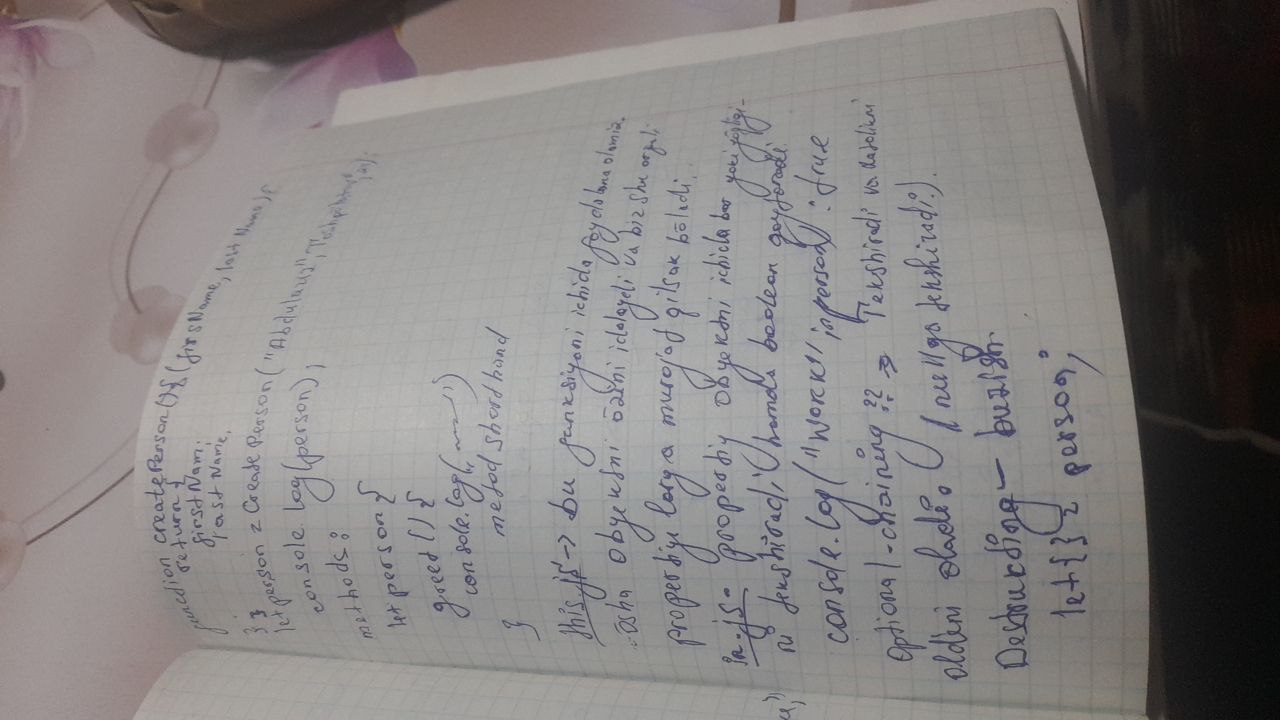 function createPerson(){(firsName, last Name){
return {
firstName;
last Name,
}}
let person = Create Person("Abdulaziz",
console.log(person);
methods:
let person {
greed () {
console.log("~~~")
metod shordhand
}
this.js → bu funksiyani ichida foydalana olamiz.
osha obyektni o'zini idalaydi va biz shu orqali
propertiyelarga murojat qilsak bo'ladi.
in.js: propertiy obyektni ichida bor yoki yo'qligi-
ni tekshiradi, hamda boolean qaytaradi
console.log("workk" in person): true
Optional-chaining ?? → Tekshiradi va xatolikni
oldini oladi. (nullga tekshiradi).
Destrukting — buzilish
let { } = person;
a;")